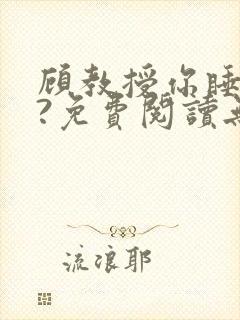 顧教授你睡
?免費閱讀
流浪耶